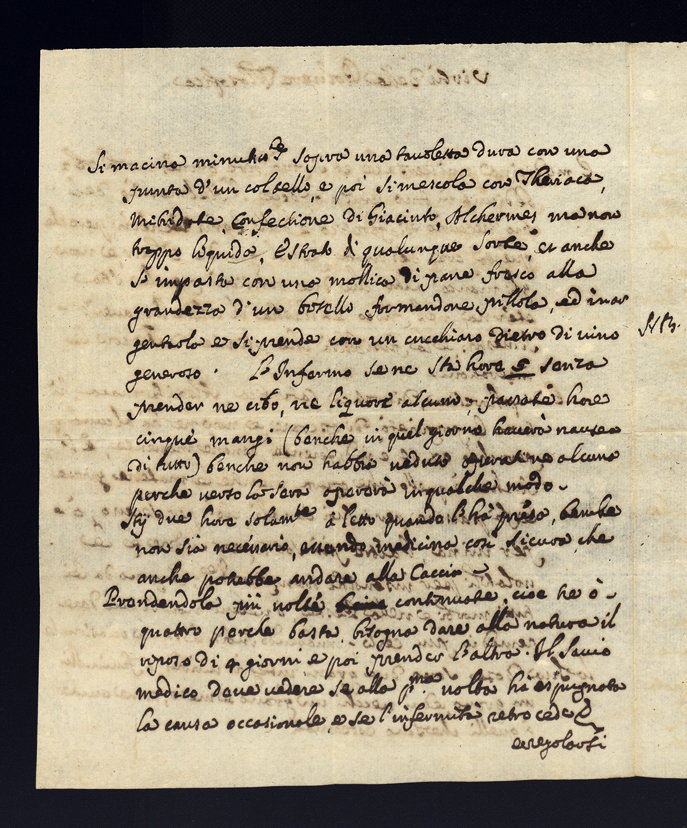 Si macina minutam.te sopra una tavoletta dura con una
punta d'un coltello, e poi si mescola con Theriaca,
Mitridate, Confectione di Giacinto, Alchermes ma non
troppo liquida, Estrato di qualunque sorte, et anche
s'impasta con una mollica di pane fresco alla
grandezza d'un formandone pillola, ed inar
gentola e si prende con un cucchiaro dietro di vino
generoso. L'Infermo se ne stà hore 5 senza
prender ne cibo, ne liquore alcuno, passate hore
cinque mangi (benche in quel giorno haverà nausea
di tutto) benche non habbia veduto operatione alcuna
perche verso la sera opererà in qualche modo.
Stij due hore solam.te a letto quando l'hà presa, benche
non sia necessario, essendo medicina così sicura, che
anche potrebbe andare alla Caccia
Prendendola più volte continuate, cioe tre ò
quattro perche basta, bisogna dare alla natura il
riposo di 4 giorni e poi prender l'altra. Il savio
medico deve vedere se alla p.ma volta hà espugnata
la causa occasionale, e se l'infermità retrocede
e regolarsi
NB.